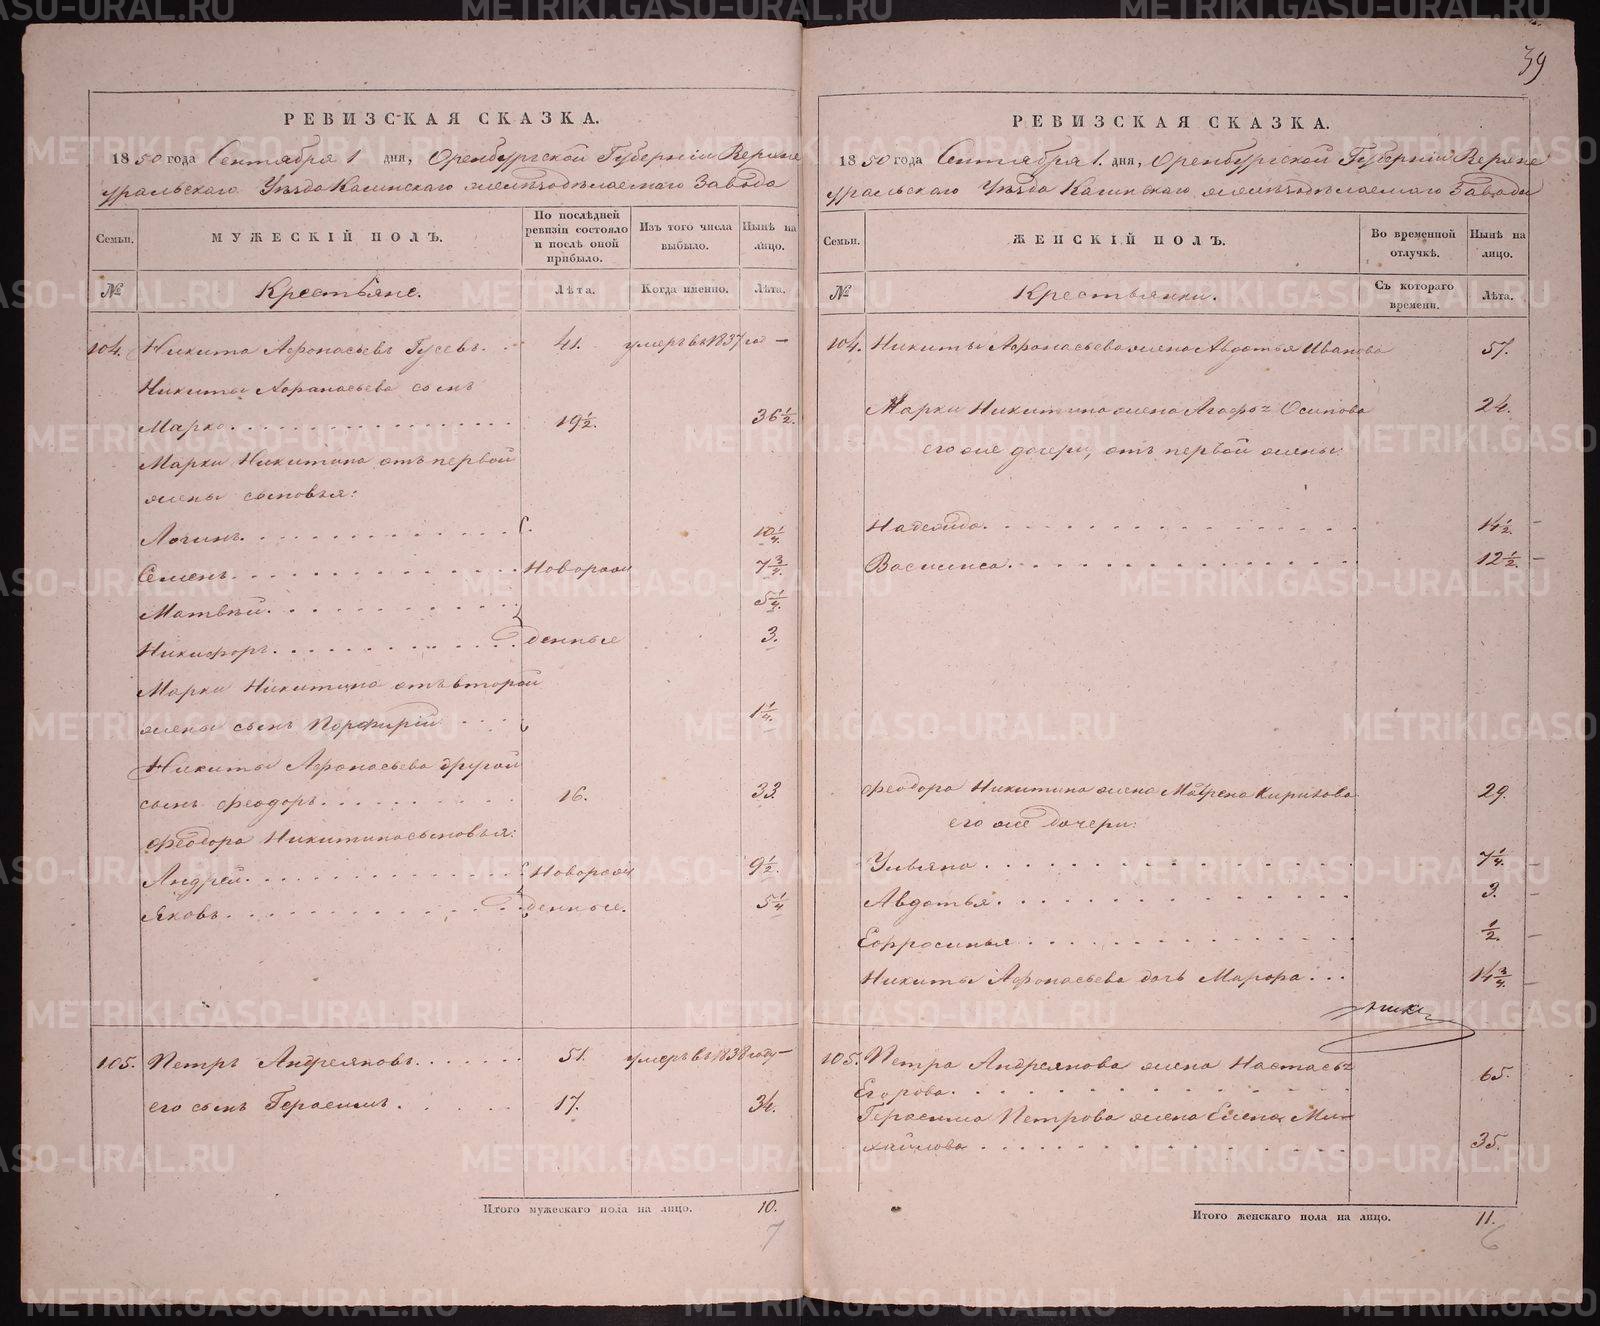 39
РЕВИЗСКАЯ СКАЗКА.
1850 года Сентября 1 дня, Оренбургской Губерніи Верхне
уральскаго Уѣзда Кагинскаго желѣзодѣлаемаго Завода
Семьи.
МУЖЕСКІЙ ПОЛЪ.
По послѣдней ревизіи состояло и послѣ оной прибыло.
Изъ того числа выбыло.
Нынѣ на лицо.
№
Крестьяне.
Лѣта.
Когда именно.
Лѣта.
104. Никита Афонасьевъ Гусевъ. 41. умеръ въ 1837 год —
Никиты Афанасьева сынъ
Марко. 19 1/2. 36 1/2.
Марки Никитина отъ первой
жены сыновья:
Логинъ. 10 1/4.
Семенъ. Новорож 7 3/4.
Матвѣй. 5 1/4.
Никифоръ. денные 3.
Марки Никитина отъ второй
жены сынъ Порфирій 1 1/4.
Никиты Афонасьева другой
сынъ Феодоръ. 16. 33.
Феодора Никитина сыновья:
Андрей. Новорож 9 1/2.
Яковъ. денные. 5 1/4
105. Петръ Андреяновъ. 51. умеръ въ 1838 году —
его сынъ Герасимъ. 17. 34.
Итого мужескаго пола на лицо. 10.
7
РЕВИЗСКАЯ СКАЗКА.
1850 года Сентября 1. дня, Оренбургской Губерніи Верхне
уральскаго Уѣзда Кагинскаго желѣзодѣлаемаго Завода
Семьи.
ЖЕНСКІЙ ПОЛЪ.
Во временной отлучкѣ.
Нынѣ на лицо.
№
Крестьянки.
Съ котораго времени.
Лѣта.
104. Никиты Афонасьева жена Авдотья Иванова 57.
Марки Никитина жена Агафья Осипова 24.
его же дочери, отъ первой жены:
Надежда. 14 1/2. —
Василиса. 12 1/2. —
Феодора Никитина жена Матрена Кирилова 29.
его же дочери:
Ульяна. 7 1/4. —
Авдотья. 3. —
Ефросинья. 1/2. —
Никиты Афонасьева дочь Марфа. 14 3/4. —
105. Петра Андреянова жена Настасья
Егорова. 65.
Герасима Петрова жена Елена Ми-
хайлова 35.
Итого женскаго пола на лицо. 11.
6
METRIKI.GASO-URAL.RU